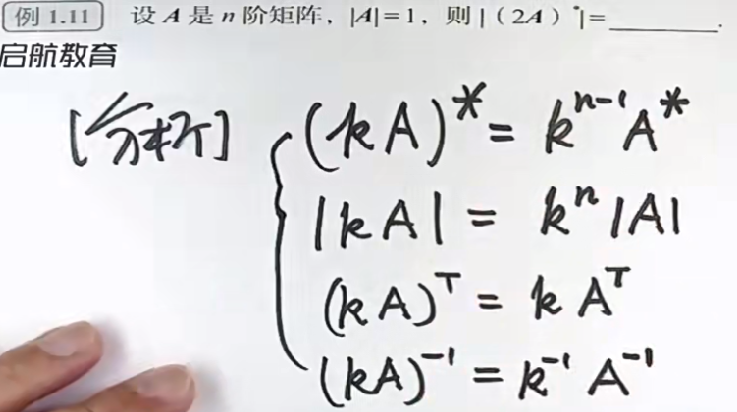 例 1.11 设 A 是 n 阶矩阵，|A|=1，则 |（2A）*|=________.
启航教育
[分析] (kA)* = kⁿ⁻¹A*
|kA| = kⁿ|A|
(kA)ᵀ = kAᵀ
(kA)⁻¹ = k⁻¹A⁻¹